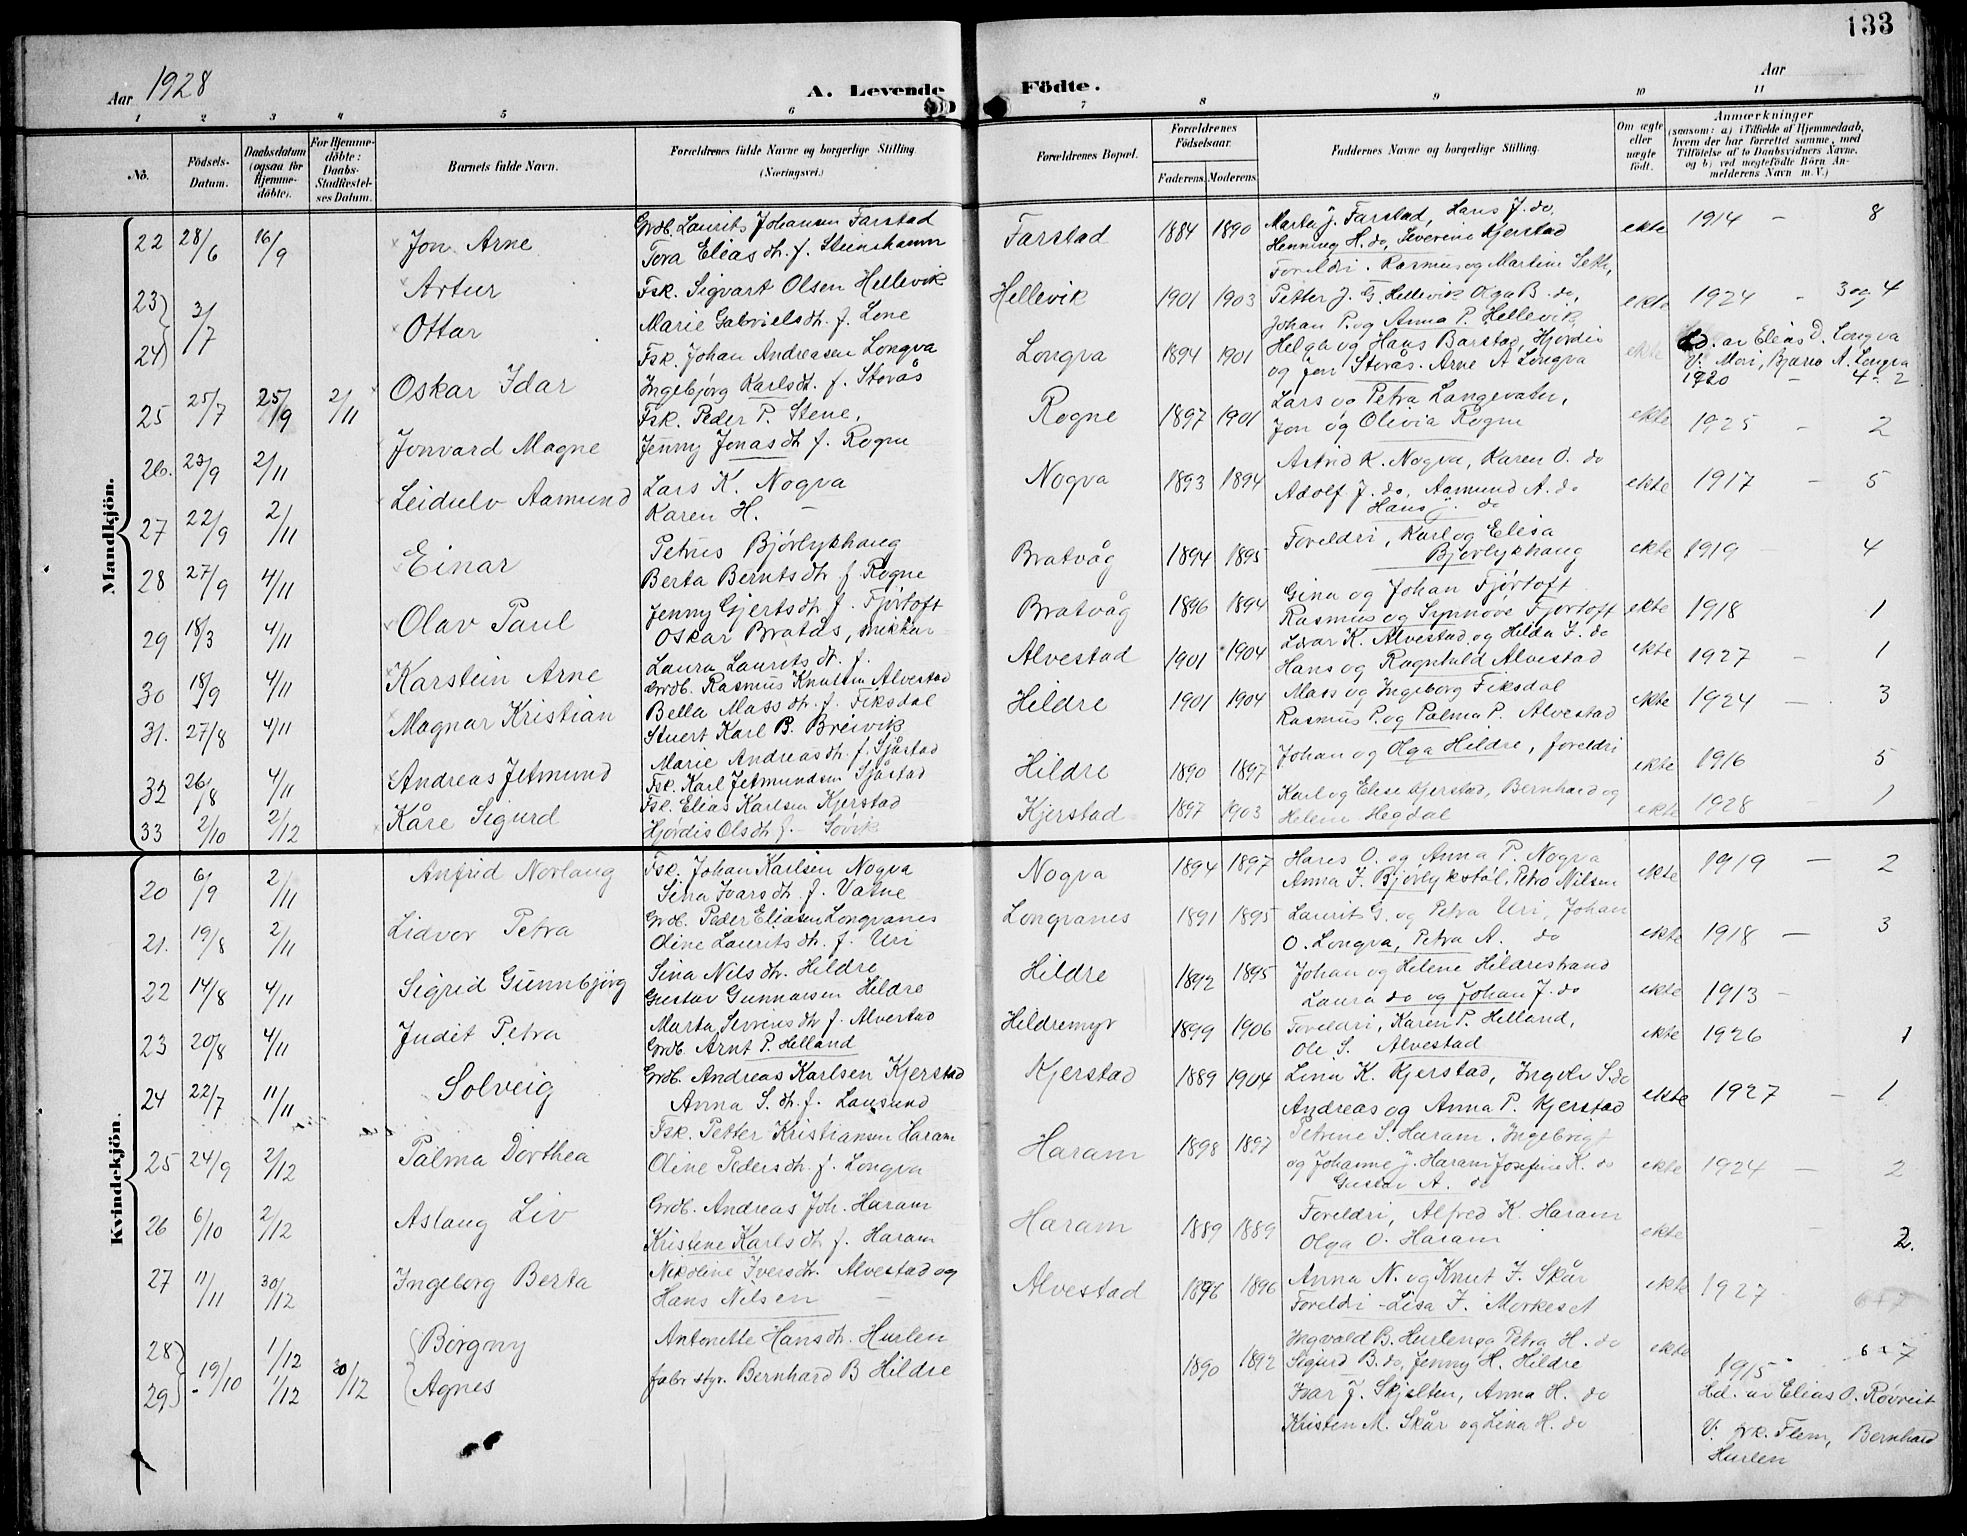 133
Aar 1928
A. Levende Födte.
Aar
1 2 3 4 5 6 7 8 9 10 11
No.
Födsels-Datum.
Daabsdatum (ogsaa for Hjemme-döbte).
For Hjemme-döbte: Daabs-Stadfæstel-ses Datum.
Barnets fulde Navn.
Forældrenes fulde Navne og borgerlige Stilling. (Næringsvei.)
Forældrenes Bopæl.
Forældrenes Födselsaar.
Faderens. Moderens.
Faddernes Navne og borgerlige Stilling.
Om ægte eller uægte födt.
Anmærkninger
(saasom: a) i Tilfælde af Hjemmedaab, hvem der har forrettet samme, med Tilföielse af to Daabsvidners Navne, og b) ved uegtefödte Börn An-melderens Navn m. V.)
Mandkjön.
22 28/6 16/9 Jon Arne Grdb. Laurits Johansen Farstad
Tora Elias dtr. f. Steinshamn Farstad 1884 1890 Marta J. Farstad, Hans J. do,
Henning H. do, Severine Kjerstad ekte 1914 - 8
23) 3/7 Artur Fsk. Sigvart Olsen Hellevik
24) Ottar Marie Gabriels dtr. f. Lone Hellevik 1901 1903 Foreldri. Rasmus og Martine Seth,
Petter J. G. Hellevik Olga B. do,
Johan P. og Anna P. Hellevik ekte 1924 - 3 og 4
25 25/7 25/9 2/11 Oskar Idar Fsk. Johan Andreasen Longva
Ingebjørg Karlsdt. f. Storås Longva 1894 1901 Helga og Hans Barstad, Hjördis
og Jon Storås. Arne A Longva ekte Hd. av Elias D. Longva
V: Mori, Bjarne A. Longva
1920 - 4 - 2
26. 23/9 2/11 Jonvard Magne Fsk. Peder P. Stene,
Jenny Jonas dtr f. Rogne Rogne 1897 1901 Lars og Petra Langevatn,
Jon og Olivia Rogne ekte 1925 - 2
27 22/9 2/11 Leidulv Aamund Lars K. Nogva
Karen H. - Nogva 1893 1894 Astrid K. Nogva, Karen O. do
Adolf J. do, Aamund A. do
Hans J. do ekte 1917 - 5
28 27/9 4/11 Einar Petrus Bjørlykhaug
Berta Bernts dtr f Rogne Bratvåg 1894 1895 Foreldri, Karl og Elisa
Bjørlykhaug ekte 1919 4
29 18/3 4/11 Olav Paul Jenny Gjerts dtr f. Fjörtoft
Oskar Bratås, snikkar Bratvåg 1896 1894 Gina og Johan Fjörtoft
Rasmus og Synnöve Fjörtoft ekte 1918 1
30 18/9 4/11 Karstein Arne Laura Laurits dt. f.
Grdb. Rasmus Knutsen Alvestad Alvestad 1901 1904 Ivar K. Alvestad og Hilda I. do
Hans og Ragnhild Alvestad ekte 1927 - 1
31. 27/8 4/11 Magnar Kristian Bella Mass dtr. f. Fiksdal
Stuert Karl B. Breivik Hildre 1901 1904 Mass og Ingeborg Fiksdal
Rasmus P. og Palma P. Alvestad ekte 1924 - 3
32 26/8 4/11 Andreas Jetmund Marie Andreas dtr f. Sjåstad
Fsk. Karl Jetmundsen Sjåstad Hildre 1890 1897 Johan og Olga Hildre, foreldri ekte 1916 5
33 2/10 2/12 Kåre Sigurd Fsk. Elias Karlsen Kjerstad
Hjördis Ols dtr f. - Sövik Kjerstad 1897 1903 Karl og Elise Kjerstad, Bernhard og
Helene Hegdal ekte 1928 - 1
Kvindekjön.
20 6/9 2/11 Anfrid Norlaug Fsk. Johan Karlsen Nogva
Sina Ivars dtr. f. Vatne Nogva 1894 1897 Hans O. og Anna P. Nogva
Anna I. Bjørlykstöl, Petro Nilsen ekte 1919 - 2
21. 19/8 2/11 Lidvor Petra Grdb. Peder Eliasen Longvanes
Oline Laurits dtr. f. Uri Longvanes 1891 1895 Laurits G. og Petra Uri, Johan
O. Longva, Petra A. do ekte 1918 - 3
22 14/8 4/11 Sigrid Gunnbjörg Sina Nils dtr. Hildre
Gustav Gunnarsen Hildre Hildre 1892 1895 Johan og Helene Hildrestrand
Laura do og Johan J. do ekte 1913 -
23 20/8 4/11 Judit Petra Marta Severins dtr f. Alvestad
Grdb. Arnt P. Helland Hildremyr 1899 1906 Foreldri, Karen P. Helland,
Ole S. Alvestad ekte 1926 1
24 22/7 11/11 Solveig Grdb. Andreas Karlsen Kjerstad
Anna S. dtr. f. Lausund Kjerstad 1889 1904 Lina K. Kjerstad, Ingolv S. do
Andreas og Anna P. Kjerstad ekte 1927 - 1
25 24/9 2/12 Palma Dorthea Fsk. Petter Kristiansen Haram
Oline Peders dtr. f. Longva Haram 1898 1897 Petrine S. Haram. Ingebrigt
og Johanne J. Haram Josefine K. do
Gustav A. do ekte 1924 - 2
26 6/10 2/12 Aslaug Liv Grdb. Andreas Joh. Haram
Kristine Karls dtr f. Haram Haram 1889 1889 Foreldri, Alfred K. Haram
Olga O. Haram ekte 2.
27 11/11 30/12 Ingeborg Berta Nikoline Ivers dtr. Alvestad og
Hans Nilsen - Alvestad 1896 1896 Anna N. og Knut I. Skår
Foreldri - Lisa I. Morkeset ekte 1927
28) 19/10 1/12 30/12 (Borgny Antonette Hans dtr. Hurlen
29) - 1/12 (Agnes fabr styr. Bernhard B Hildre 1890 1892 Ingvald B. Hurlen og Petra H. do
Sigurd B. do, Jenny H. Hildre
Ivar J. Skjelten, Anna H. do
Kristen M. Skår og Lina H. do ekte 1915 6 - 7
Hd. av Elias O. Røvreit
V: frk. Flem, Bernhard
Hurlen